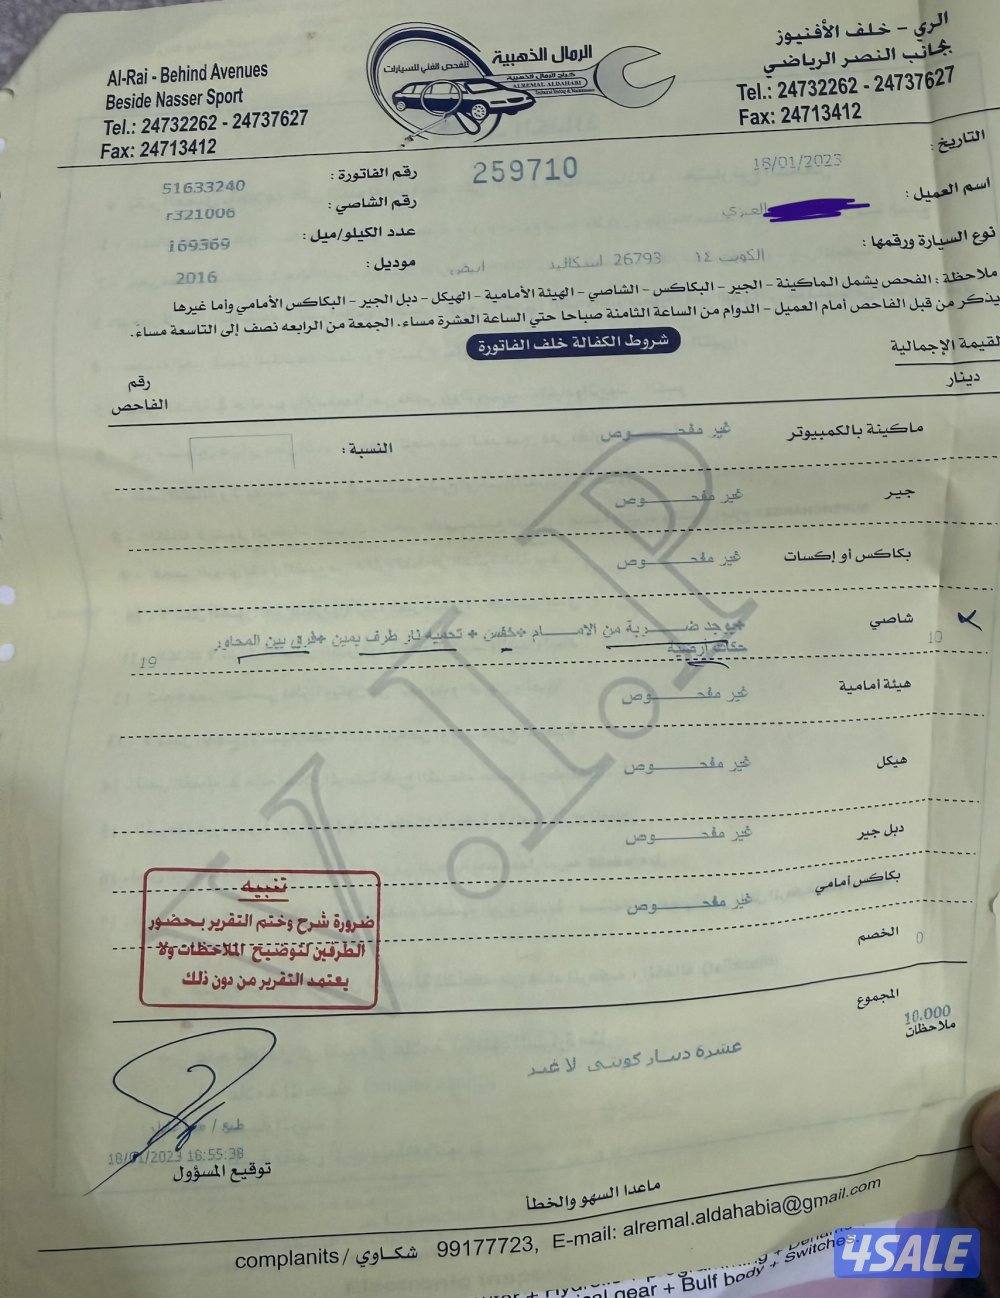 Al-Rai - Behind Avenues
Beside Nasser Sport
Tel.: 24732262 - 24737627
Fax: 24713412
الرمال الذهبية
للفحص الفني للسيارات
كراج الرمال الذهبية
ALREMAL ALDAHABI
الري - خلف الأفنيوز
بجانب النصر الرياضي
Tel.: 24732262 - 24737627
Fax: 24713412
التاريخ : 18/01/2023
259710
رقم الفاتورة : 51633240
اسم العميل : العنزي
رقم الشاصي : r321006
نوع السيارة ورقمها : الكويت ١٤ 26793 اسكاليد ابيض
عدد الكيلو/ميل : 169369
موديل : 2016
ملاحظة : الفحص يشمل الماكينة - الجير - البكاكس - الشاصي - الهيئة الأمامية - الهيكل - دبل الجير - البكاكس الأمامي وأما غيرها
يذكر من قبل الفاحص أمام العميل - الدوام من الساعة الثامنة صباحا حتي الساعة العشرة مساء. الجمعة من الرابعه نصف إلى التاسعة مساء.
شروط الكفالة خلف الفاتورة
لقيمة الإجمالية
دينار
رقم
الفاحص
ماكينة بالكمبيوتر غير مفحـــــوص النسبة :
جير غير مفحـــــوص
بكاكس أو إكسات غير مفحـــــوص
شاصي 10
*يوجد ضـــربة من الامـــام +خفس + تحميه نار طرف يمين +فرق بين المحاور
حكات ارضية
19
هيئة أمامية غير مفحـــــوص
هيكل غير مفحـــــوص
دبل جير غير مفحـــــوص
بكاكس أمامي غير مفحـــــوص
الخصم 0
V.I.P
تنبيه
ضرورة شرح وختم التقرير بحضور
الطرفين لتوضيح الملاحظات ولا
يعتمد التقرير من دون ذلك
المجموع 10.000
ملاحظات
عشرة دينار كويتي لا غير
طبع /
18/01/2023 16:55:38
توقيع المسؤول
ماعدا السهو والخطأ
complanits / شكاوي 99177723, E-mail: alremal.aldahabia@gmail.com
gear + Bulf body + Switches.
4SALE